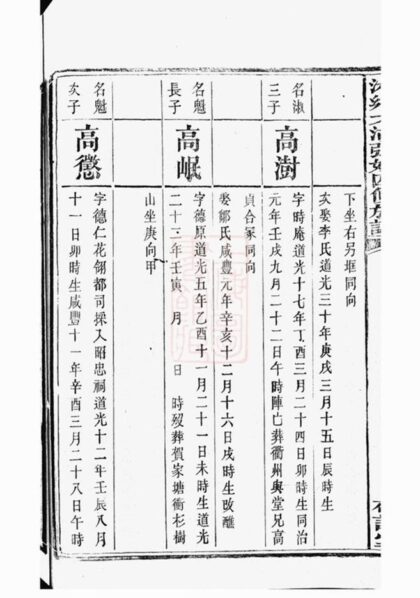 下坐右另堀同向
次娶李氏道光三十年庚戌三月十五日辰時生
名淑三子
高澍
字時庵道光十七年丁酉三月二十四日卯時生同治
元年壬戌九月二十二日午時陣亡葬衢州與堂兄高
貞合冢同向
娶鄒氏咸豐元年辛亥十二月十六日戌時生改醮
名魁長子
高岷
字德原道光五年乙酉十一月二十一日未時生道光
二十三年壬寅 月 日 時歿葬賀家塘衝杉樹
山坐庚向甲
名魁次子
高懲
字德仁花翎都司採入昭忠祠道光十二年壬辰八月
十一日卯時生咸豐十一年辛酉三月二十八日午時